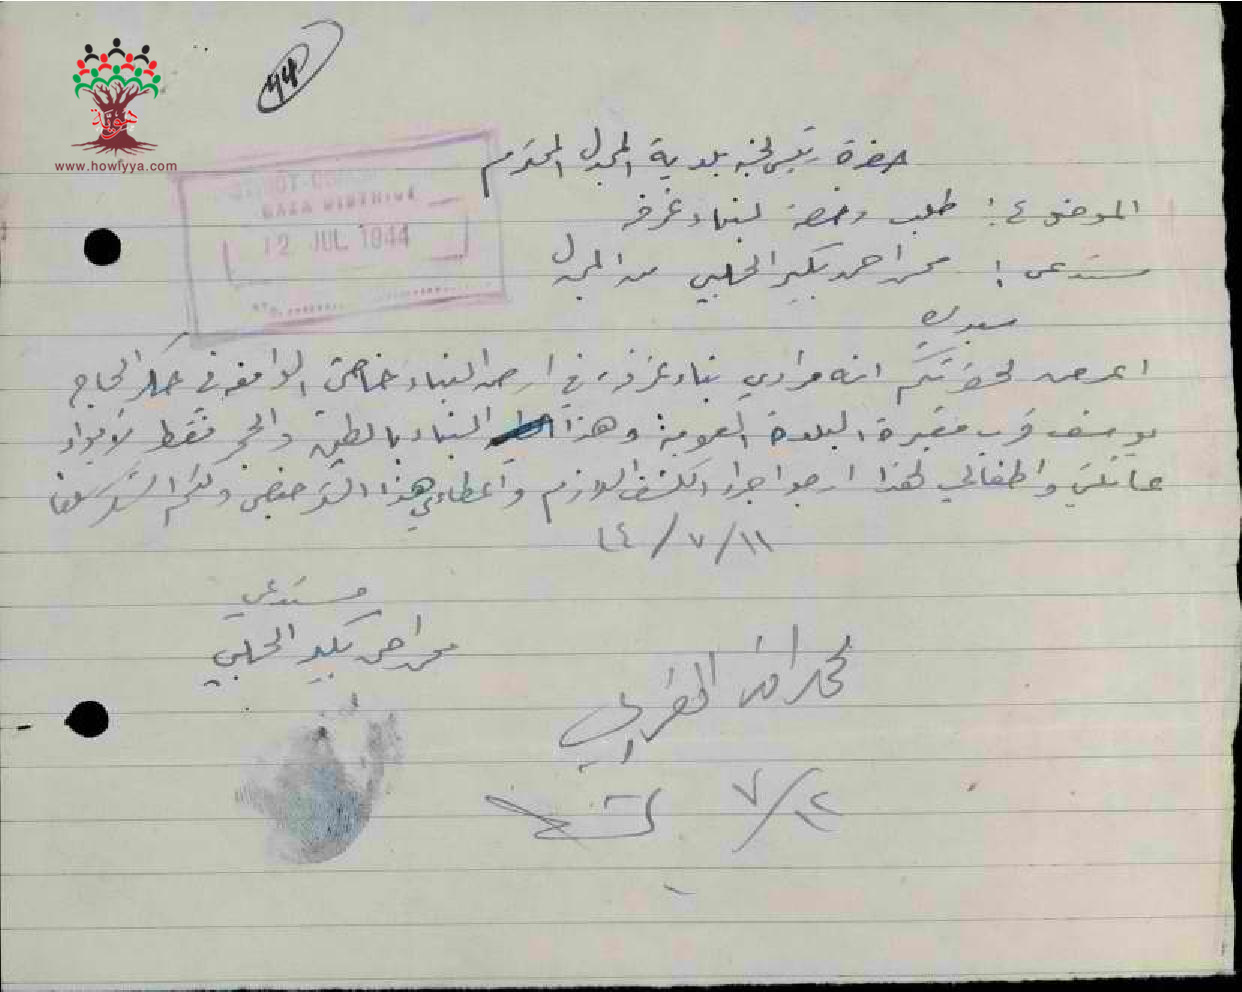 حضرة رئيس لجنة بلدية المجدل المحترم
الموضوع : طلب رخصة لبناء غرفة
مستدعي : محمد احمد بكير الحلبي من المجدل
سيدي
اعرض لحضرتكم انه مرادي بناء غرفة في ارض البناء خاصتي الواقعة في حكر الحاج
يوسف قرب مقبرة البلدة العمومية وهذا البناء بالطين والحجر فقط لإيواء
عائلتي واطفالي لهذا ارجو اجراء الكشف اللازم واعطائي هذا الترخيص ولكم الشكر سلفا
١١ / ٧ /
مستدعي
محمد احمد بكير الحلبي
٧/١٢
GAZA DISTRICT
12 JUL 1944
No.
www.howiyya.com
هوية